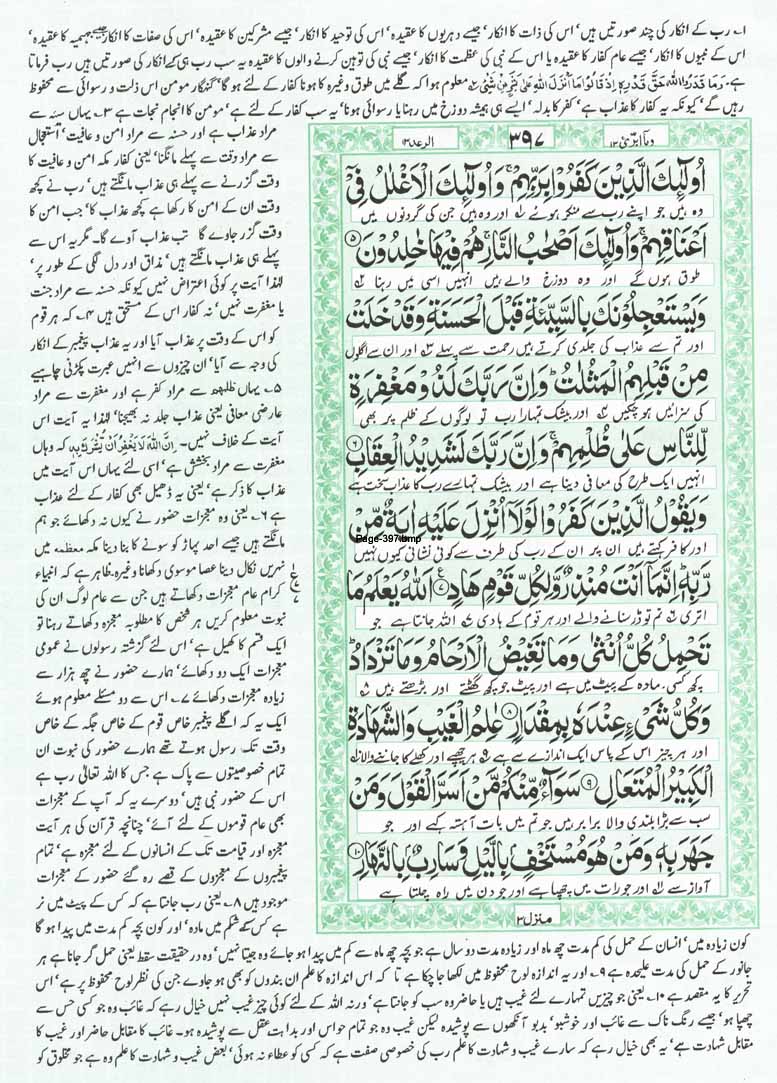 ۱۔ رب کے انکار کی چند صورتیں ہیں' اس کی ذات کا انکار' جیسے دہریوں کا عقیدہ' اس کی توحید کا انکار' جیسے مشرکین کا عقیدہ' اس کی صفات کا انکار جیسے جہمیہ کا عقیدہ'
اس کے نبیوں کا انکار' جیسے عام کفار کا عقیدہ یا اس کے نبی کی عظمت کا انکار' جیسے نبی کی توہین کرنے والوں کا عقیدہ یہ سب رب ہی کے انکار کی صورتیں ہیں رب فرماتا
ہے۔ وَمَا قَدَرُوا اللہَ حَقَّ قَدْرِہٖ اِذْ قَالُوْا مَا اَنْزَلَ اللہُ عَلٰی بَشَرٍ مِّنْ شَیْءٍ ۲۔ معلوم ہوا کہ گلے میں طوق وغیرہ کا ہونا کفار کے لئے ہو گا' گنہگار مومن اس ذلت و رسوائی سے محفوظ
رہیں گے' کیونکہ یہ کفار کا عذاب ہے' کفر کا بدلہ' ایسے ہی ہمیشہ دوزخ میں رہنا یا رسوائی ہونا' یہ سب کفار کے لئے ہے' مومن کا انجام نجات ہے ۳۔ یہاں سیئہ سے
مراد عذاب ہے اور حسنہ سے مراد امن و عافیت' استعجال
سے مراد وقت سے پہلے مانگنا' یعنی کفار مکہ امن و عافیت کا
وقت گزرنے سے پہلے ہی عذاب مانگتے ہیں' رب نے کچھ
وقت ان کے امن کا رکھا ہے کچھ عذاب کا' جب امن کا
وقت گزر جاوے گا تب عذاب آوے گا۔ مگر یہ اس سے
پہلے ہی عذاب مانگتے ہیں' مذاق اور دل لگی کے طور پر'
لہٰذا آیت پر کوئی اعتراض نہیں کیونکہ حسنہ سے مراد جنت
یا مغفرت نہیں' نہ کفار اس کے مستحق ہیں ۴۔ کہ ہر قوم
کو اس کے وقت پر عذاب آیا اور یہ عذاب پیغمبر کے انکار
کی وجہ سے آیا' ان چیزوں سے انہیں عبرت پکڑنی چاہیے
۵۔ یہاں ظلمھم سے مراد کفر ہے اور مغفرت سے مراد
عارضی معافی یعنی عذاب جلد نہ بھیجنا' لہٰذا یہ آیت اس
آیت کے خلاف نہیں۔ اِنَّ اللہَ لَا یَغْفِرُ اَنْ یُّشْرَکَ بِہٖ کہ وہاں
مغفرت سے مراد بخشش ہے' اسی لئے یہاں اس آیت میں
عذاب کا ذکر ہے' یعنی یہ ڈھیل بھی کفار کے لئے عذاب
ہے ۶۔ یعنی وہ معجزات حضور نے کیوں نہ دکھائے جو ہم
مانگتے ہیں جیسے احد پہاڑ کو سونے کا بنا دینا مکہ معظمہ میں
نہریں نکال دینا عصا موسوی دکھانا وغیرہ۔ ظاہر ہے کہ انبیاء
کرام عام معجزات دکھاتے ہیں جن سے عام لوگ ان کی
نبوت معلوم کریں ہر شخص کا مطلوبہ معجزہ دکھاتے رہنا تو
ایک قسم کا کھیل ہے' اس لئے گزشتہ رسولوں نے عمومی
معجزات ایک دو دکھائے' ہمارے حضور نے چھ ہزار سے
زیادہ معجزات دکھائے ۷۔ اس سے دو مسئلے معلوم ہوئے
ایک یہ کہ اگلے پیغمبر خاص قوم کے خاص جگہ کے خاص
وقت تک رسول ہوتے تھے ہمارے حضور کی نبوت ان
تمام خصوصیتوں سے پاک ہے جس کا اللہ تعالٰی رب ہے
اس کے حضور نبی ہیں' دوسرے یہ کہ آپ کے معجزات
بھی عام قوموں کے لئے آئے' چنانچہ قرآن کی ہر آیت
معجزہ اور قیامت تک کے انسانوں کے لئے معجزہ ہے' تمام
پیغمبروں کے معجزوں کے قصے رہ گئے حضور کے معجزات
موجود ہیں ۸۔ یعنی رب جانتا ہے کہ کس کے پیٹ میں نر
ہے کس کے شکم میں مادہ' اور کون بچہ کم مدت میں پیدا ہو گا
دما ابرئ ۱۳
۳۹۷
الرعد ۱۳
اُولٰٓئِکَ الَّذِیْنَ کَفَرُوْا بِرَبِّھِمْ ۚ وَاُولٰٓئِکَ الْاَغْلٰلُ فِیْٓ
وہ ہیں جو اپنے رب سے منکر ہوئے ۱ اور وہ ہیں جن کی گردنوں میں
اَعْنَاقِھِمْ ۚ وَاُولٰٓئِکَ اَصْحٰبُ النَّارِ ۚ ھُمْ فِیْھَا خٰلِدُوْنَ ۵
طوق ہوں گے ۲ اور وہ دوزخ والے ہیں انہیں اسی میں رہنا
وَیَسْتَعْجِلُوْنَکَ بِالسَّیِّئَۃِ قَبْلَ الْحَسَنَۃِ وَقَدْ خَلَتْ
اور تم سے عذاب کی جلدی کرتے ہیں رحمت سے پہلے ۳ اور ان سے اگلوں
مِنْ قَبْلِھِمُ الْمَثُلٰتُ ؕ وَاِنَّ رَبَّکَ لَذُوْ مَغْفِرَۃٍ
کی سزائیں ہو چکیں ۴ اور بیشک تمہارا رب تو لوگوں کے ظلم پر بھی
لِّلنَّاسِ عَلٰی ظُلْمِھِمْ ۚ وَاِنَّ رَبَّکَ لَشَدِیْدُ الْعِقَابِ ۶
انہیں ایک طرح کی معافی دیتا ہے ۵ اور بیشک تمہارے رب کا عذاب سخت ہے
وَیَقُوْلُ الَّذِیْنَ کَفَرُوْا لَوْلَآ اُنْزِلَ عَلَیْہِ اٰیَۃٌ مِّنْ
Page-397.bmp
اور کافر کہتے ہیں ان پر ان کے رب کی طرف سے کوئی نشانی کیوں نہیں
رَّبِّہٖ ؕ اِنَّمَآ اَنْتَ مُنْذِرٌ وَّلِکُلِّ قَوْمٍ ھَادٍ ۷ اَللہُ یَعْلَمُ مَا
اتری ۶ تم تو ڈر سنانے والے اور ہر قوم کے ہادی ۷ اللہ جانتا ہے جو
تَحْمِلُ کُلُّ اُنْثٰی وَمَا تَغِیْضُ الْاَرْحَامُ وَمَا تَزْدَادُ ؕ
کچھ کسی مادہ کے پیٹ میں ہے اور پیٹ جو کچھ گھٹتے اور بڑھتے ہیں ۸
وَکُلُّ شَیْءٍ عِنْدَہٗ بِمِقْدَارٍ ۸ عٰلِمُ الْغَیْبِ وَالشَّھَادَۃِ
اور ہر چیز اس کے پاس ایک اندازے سے ہے ۹ ہر چھپے اور کھلے کا جاننے والا ۱۰
الْکَبِیْرُ الْمُتَعَالِ ۹ سَوَآءٌ مِّنْکُمْ مَّنْ اَسَرَّ الْقَوْلَ وَمَنْ
سب سے بڑا بلندی والا برابر ہیں جو تم میں بات آہستہ کہے اور جو
جَھَرَ بِہٖ وَمَنْ ھُوَ مُسْتَخْفٍ بِالَّیْلِ وَسَارِبٌ بِالنَّھَارِ ۱۰
آواز سے ۱۱ اور جو رات میں چھپا ہے اور جو دن میں راہ چلتا ہے
منزل ۳
کون زیادہ میں' انسان کے حمل کی کم مدت چھ ماہ اور زیادہ مدت دو سال ہے جو بچہ چھ ماہ سے کم میں پیدا ہو جائے وہ جیتا نہیں' وہ در حقیقت سقط یعنی حمل گر جانا ہے ہر
جانور کے حمل کی مدت علیحدہ ہے ۹۔ اور یہ اندازہ لوح محفوظ میں لکھا جا چکا ہے تا کہ اس اندازہ کا علم ان بندوں کو بھی ہو جاوے جن کی نظر لوح محفوظ پر ہے' اس
تحریر کا یہ مقصد ہے ۱۰۔ یعنی جو چیزیں تمہارے لئے غیب ہیں یا حاضر وہ سب کو جانتا ہے' ورنہ اللہ کے لئے کوئی چیز غیب نہیں خیال رہے کہ غائب وہ جو کسی حس سے
چھپا ہو' جیسے رنگ ناک سے غائب اور خوشبو' بدبو آنکھوں سے پوشیدہ لیکن غیب وہ جو تمام حواس اور بداہت عقل سے پوشیدہ ہو۔ غائب کا مقابل حاضر اور غیب کا
مقابل شہادت ہے' یہ بھی خیال رہے کہ سارے غیب و شہادت کا علم رب کی خصوصی صفت ہے کہ کسی کو عطاء نہ ہوئی' بعض غیب و شہادت کا علم وہ ہے جو مخلوق کو